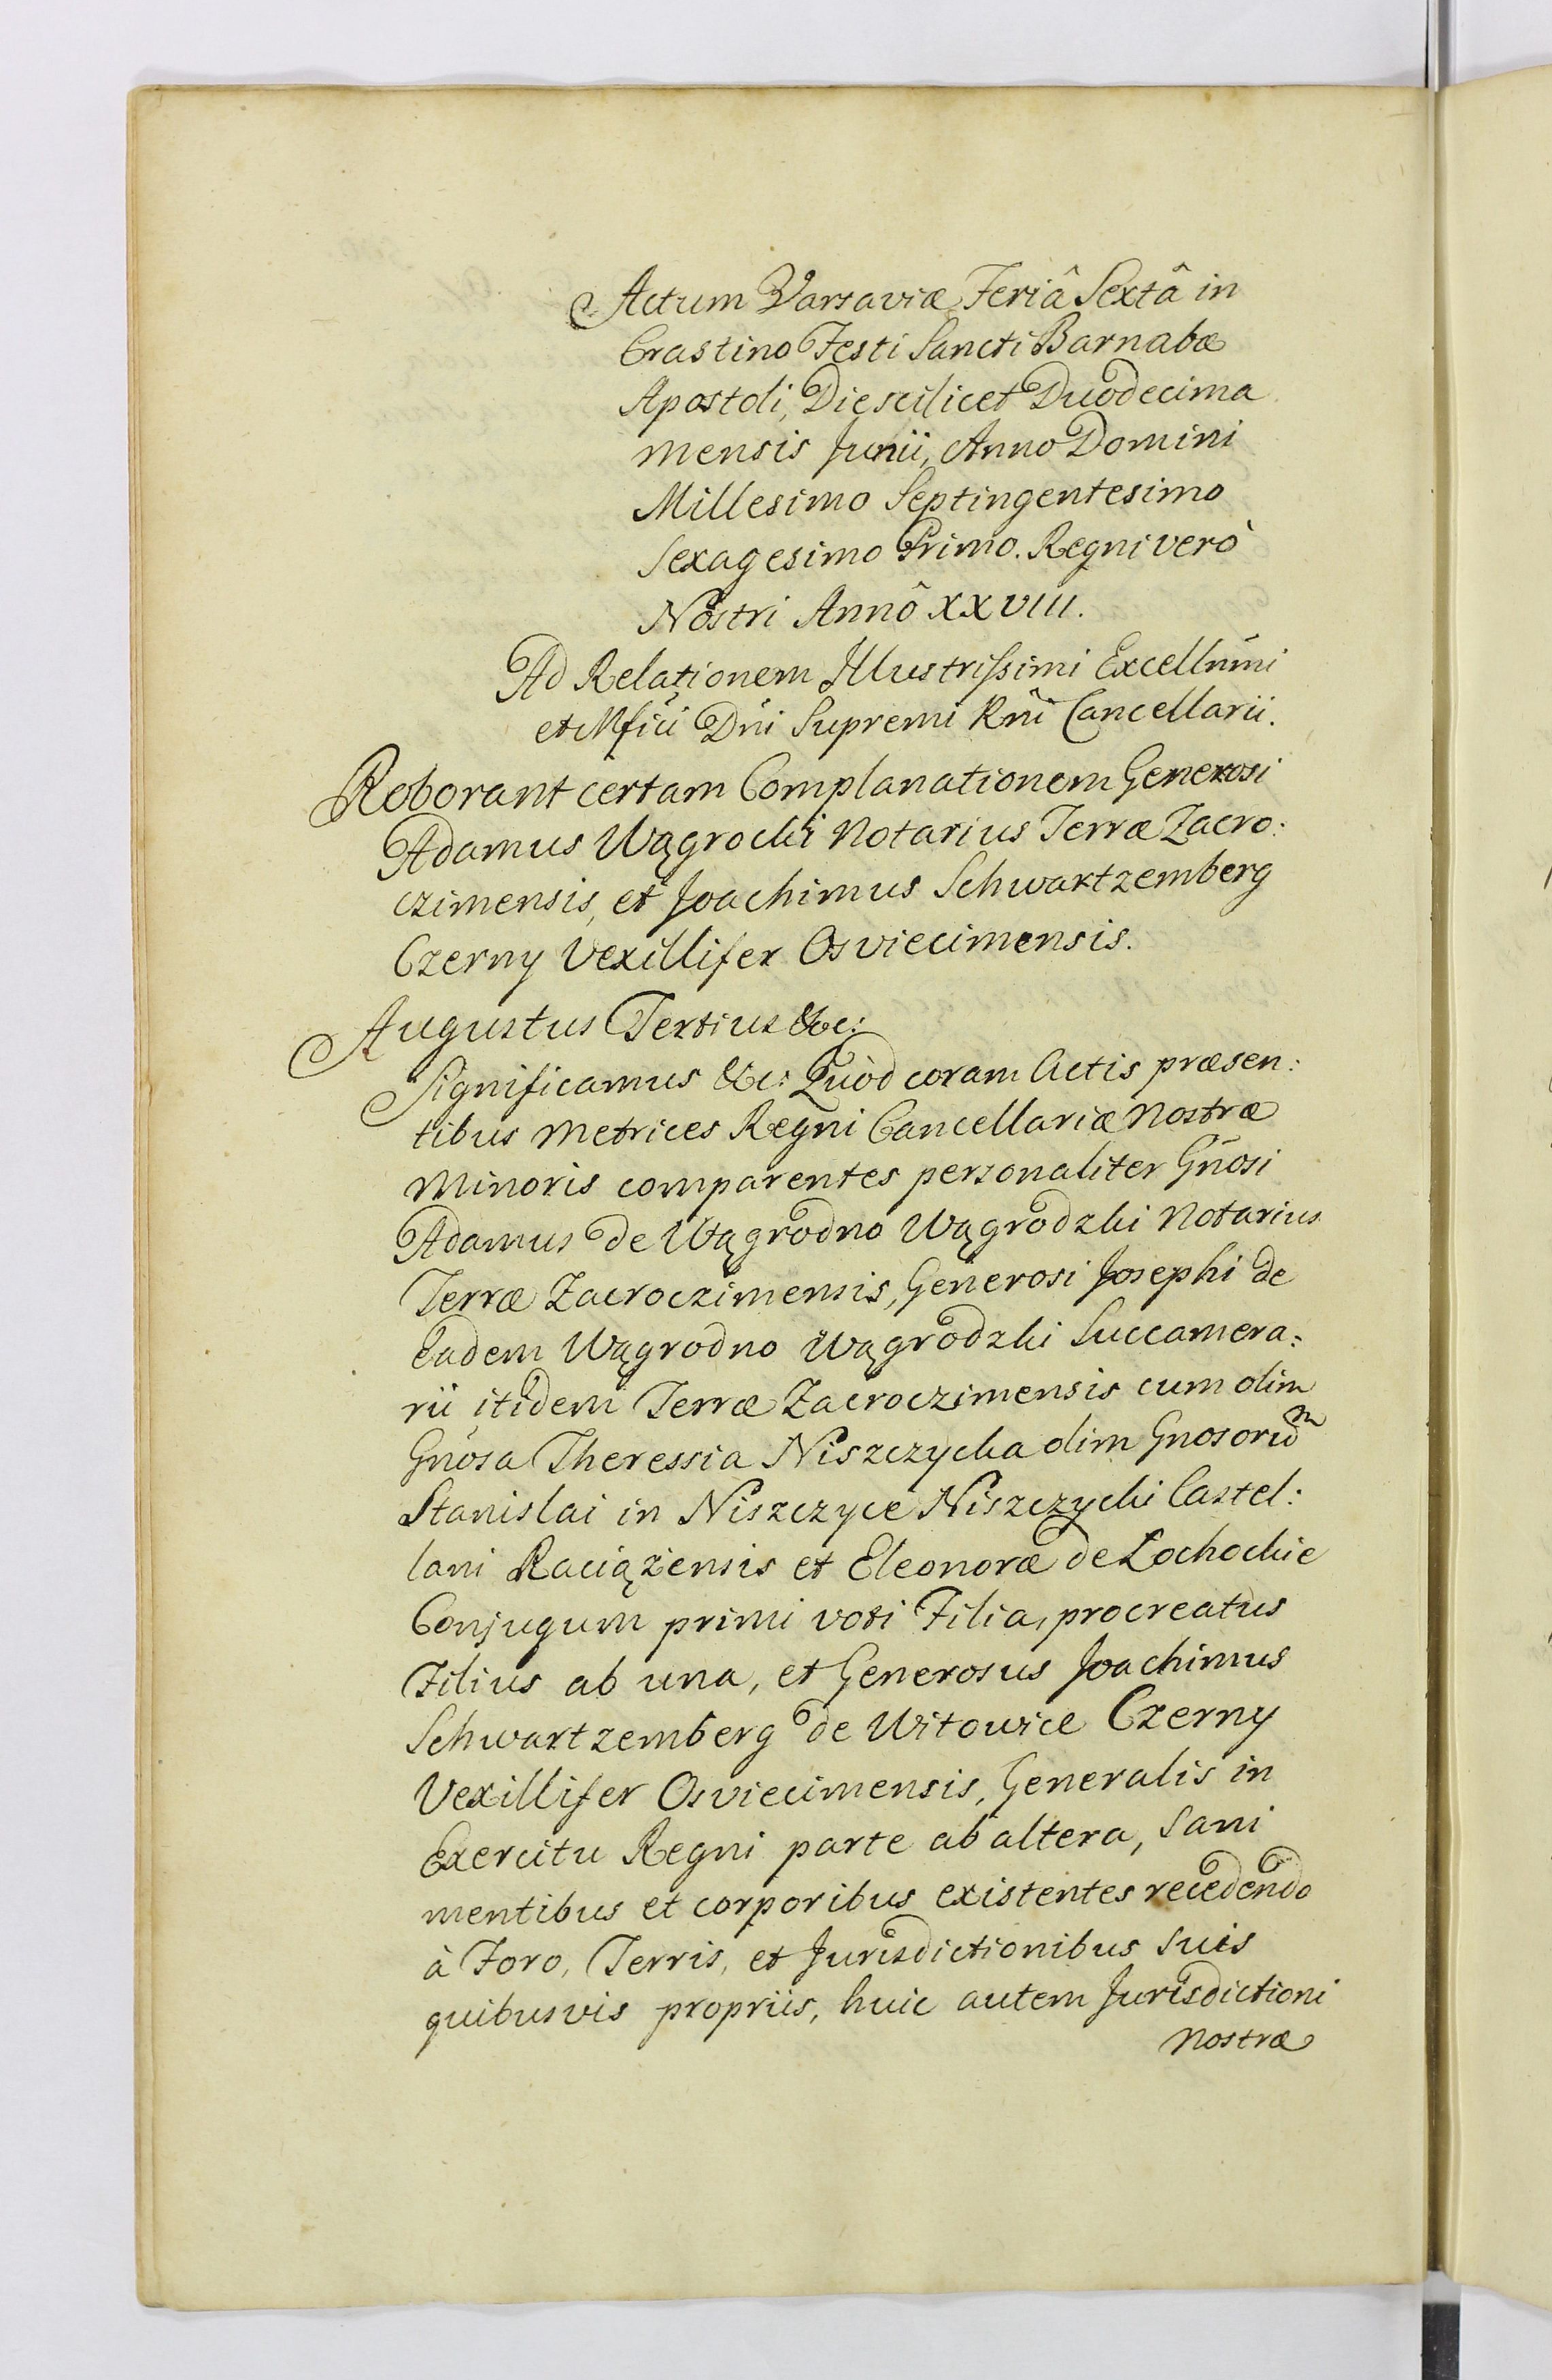 Actum Varsaviæ Feriâ Sextâ in
Crastino Festi Sancti Barnabæ
Apostoli, Die scilicet Duodecima
mensis Junii, Anno Domini
Millesimo Septingentesimo
Sexagesimo Primo. Regni verò
Nostri Annô XXVIII.
Ad Relationem Illustrissimi Excellm̃i
et Mfici Dñi Supremi Rñi Cancellarii.
Roborant certam Complanationem Generosi
Adamus Wągrocki Notarius Terræ Zacro:
czimensis, et Joachimus Schwartzemberg
Czerny Vexillifer Osviecimensis.
Augustus Tertius &c:
Significamus &c: Quòd coram Actis præsen:
tibus Metrices Regni Cancellariæ Nostræ
Minoris comparentes personaliter Gñosi
Adamus de Wągrodno Wągrodzki Notarius
Terræ Zacroczimensis, Generosi Josephi de
Eadem Wągrodno Wągrodzki Succamera:
rii itidem Terræ Zacroczimensis cum olim
Gñosa Theressia Niszczycka olim Gnosoruͫ
Stanislai in Niszczyce Niszczycki Castel:
lani Raciążensis et Eleonoræ de Łochockie
Conjugum primi voti Filia, procreatus
Filius ab una, et Generosus Joachimus
Schwartzemberg de Witowice Czerny
Vexillifer Osviecimensis, Generalis in
Exercitu Regni parte ab altera, Sani
mentibus et corporibus existentes recedendo
à Foro, Terris, et Jurisdictionibus Suis
quibusvis propriis, huic autem Jurisdictioni
Nostræ